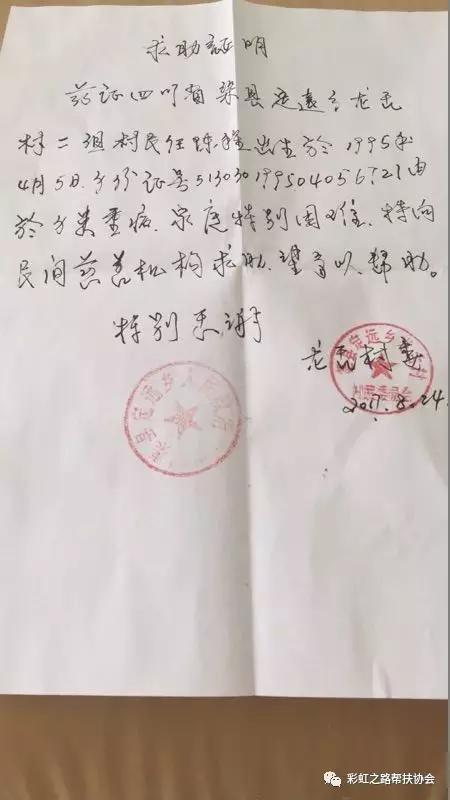 求助証明
兹证四川省渠县定远乡龙虎
村二组村民任 出生於1995年
4月5日.身份证号513030199504056721由
於身类重病.家庭特别困难.特向
民间慈善机构求助.望予以帮助。
特别感谢
渠县定远乡人民政府
龙虎村委
村民委员会
2017.8.24.
彩虹之路帮扶协会